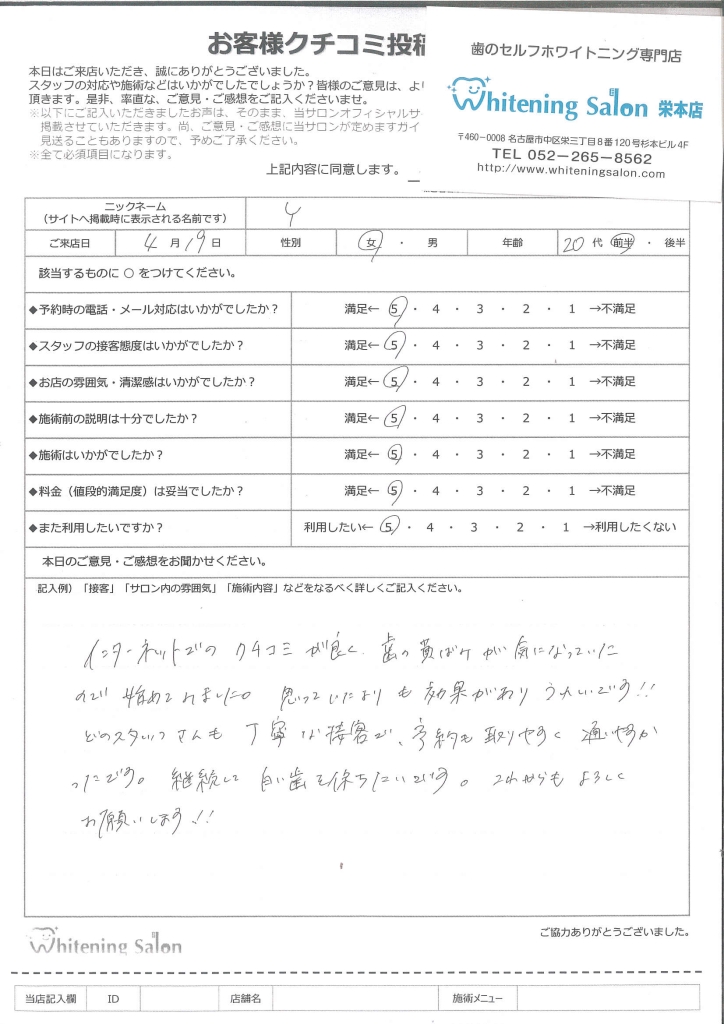 お客様クチコミ投稿
本日はご来店いただき、誠にありがとうございました。
スタッフの対応や施術などはいかがでしたでしょうか？皆様のご意見は、より
頂きます。是非、率直な、ご意見・ご感想をご記入くださいませ。
※以下にご記入いただきましたお声は、そのまま、当サロンオフィシャルサ
掲載させていただきます。尚、ご意見・ご感想に当サロンが定めますガイ
見送ることもありますので、予めご了承ください。
※全て必須項目になります。
上記内容に同意します。
歯のセルフホワイトニング専門店
Whitening Salon 栄本店
〒460-0008 名古屋市中区栄三丁目8番120号杉本ビル4F
TEL 052-265-8562
http://www.whiteningsalon.com
ニックネーム
（サイトへ掲載時に表示される名前です） Y
ご来店日 4月19日 性別 女・男 年齢 20代 前半・後半
該当するものに ○ をつけてください。
◆予約時の電話・メール対応はいかがでしたか？ 満足← 5・4・3・2・1 →不満足
◆スタッフの接客態度はいかがでしたか？ 満足← 5・4・3・2・1 →不満足
◆お店の雰囲気・清潔感はいかがでしたか？ 満足← 5・4・3・2・1 →不満足
◆施術前の説明は十分でしたか？ 満足← 5・4・3・2・1 →不満足
◆施術はいかがでしたか？ 満足← 5・4・3・2・1 →不満足
◆料金（値段的満足度）は妥当でしたか？ 満足← 5・4・3・2・1 →不満足
◆また利用したいですか？ 利用したい← 5・4・3・2・1 →利用したくない
本日のご意見・ご感想をお聞かせください。
記入例）「接客」「サロン内の雰囲気」「施術内容」などをなるべく詳しくご記入ください。
インターネットでの クチコミ が良く、歯の黄ばみ が 気になっていた
ので 始めてみました。 思っていたより も 効果があり うれしいです!!
どのスタッフ さんも 丁寧 な 接客で、予約も 取りやすく 通いやすか
ったです。 継続して 白い歯 を保ちたいです。 これからも よろしく
お願いします!!
Whitening Salon
ご協力ありがとうございました。
当店記入欄 ID 店舗名 施術メニュー